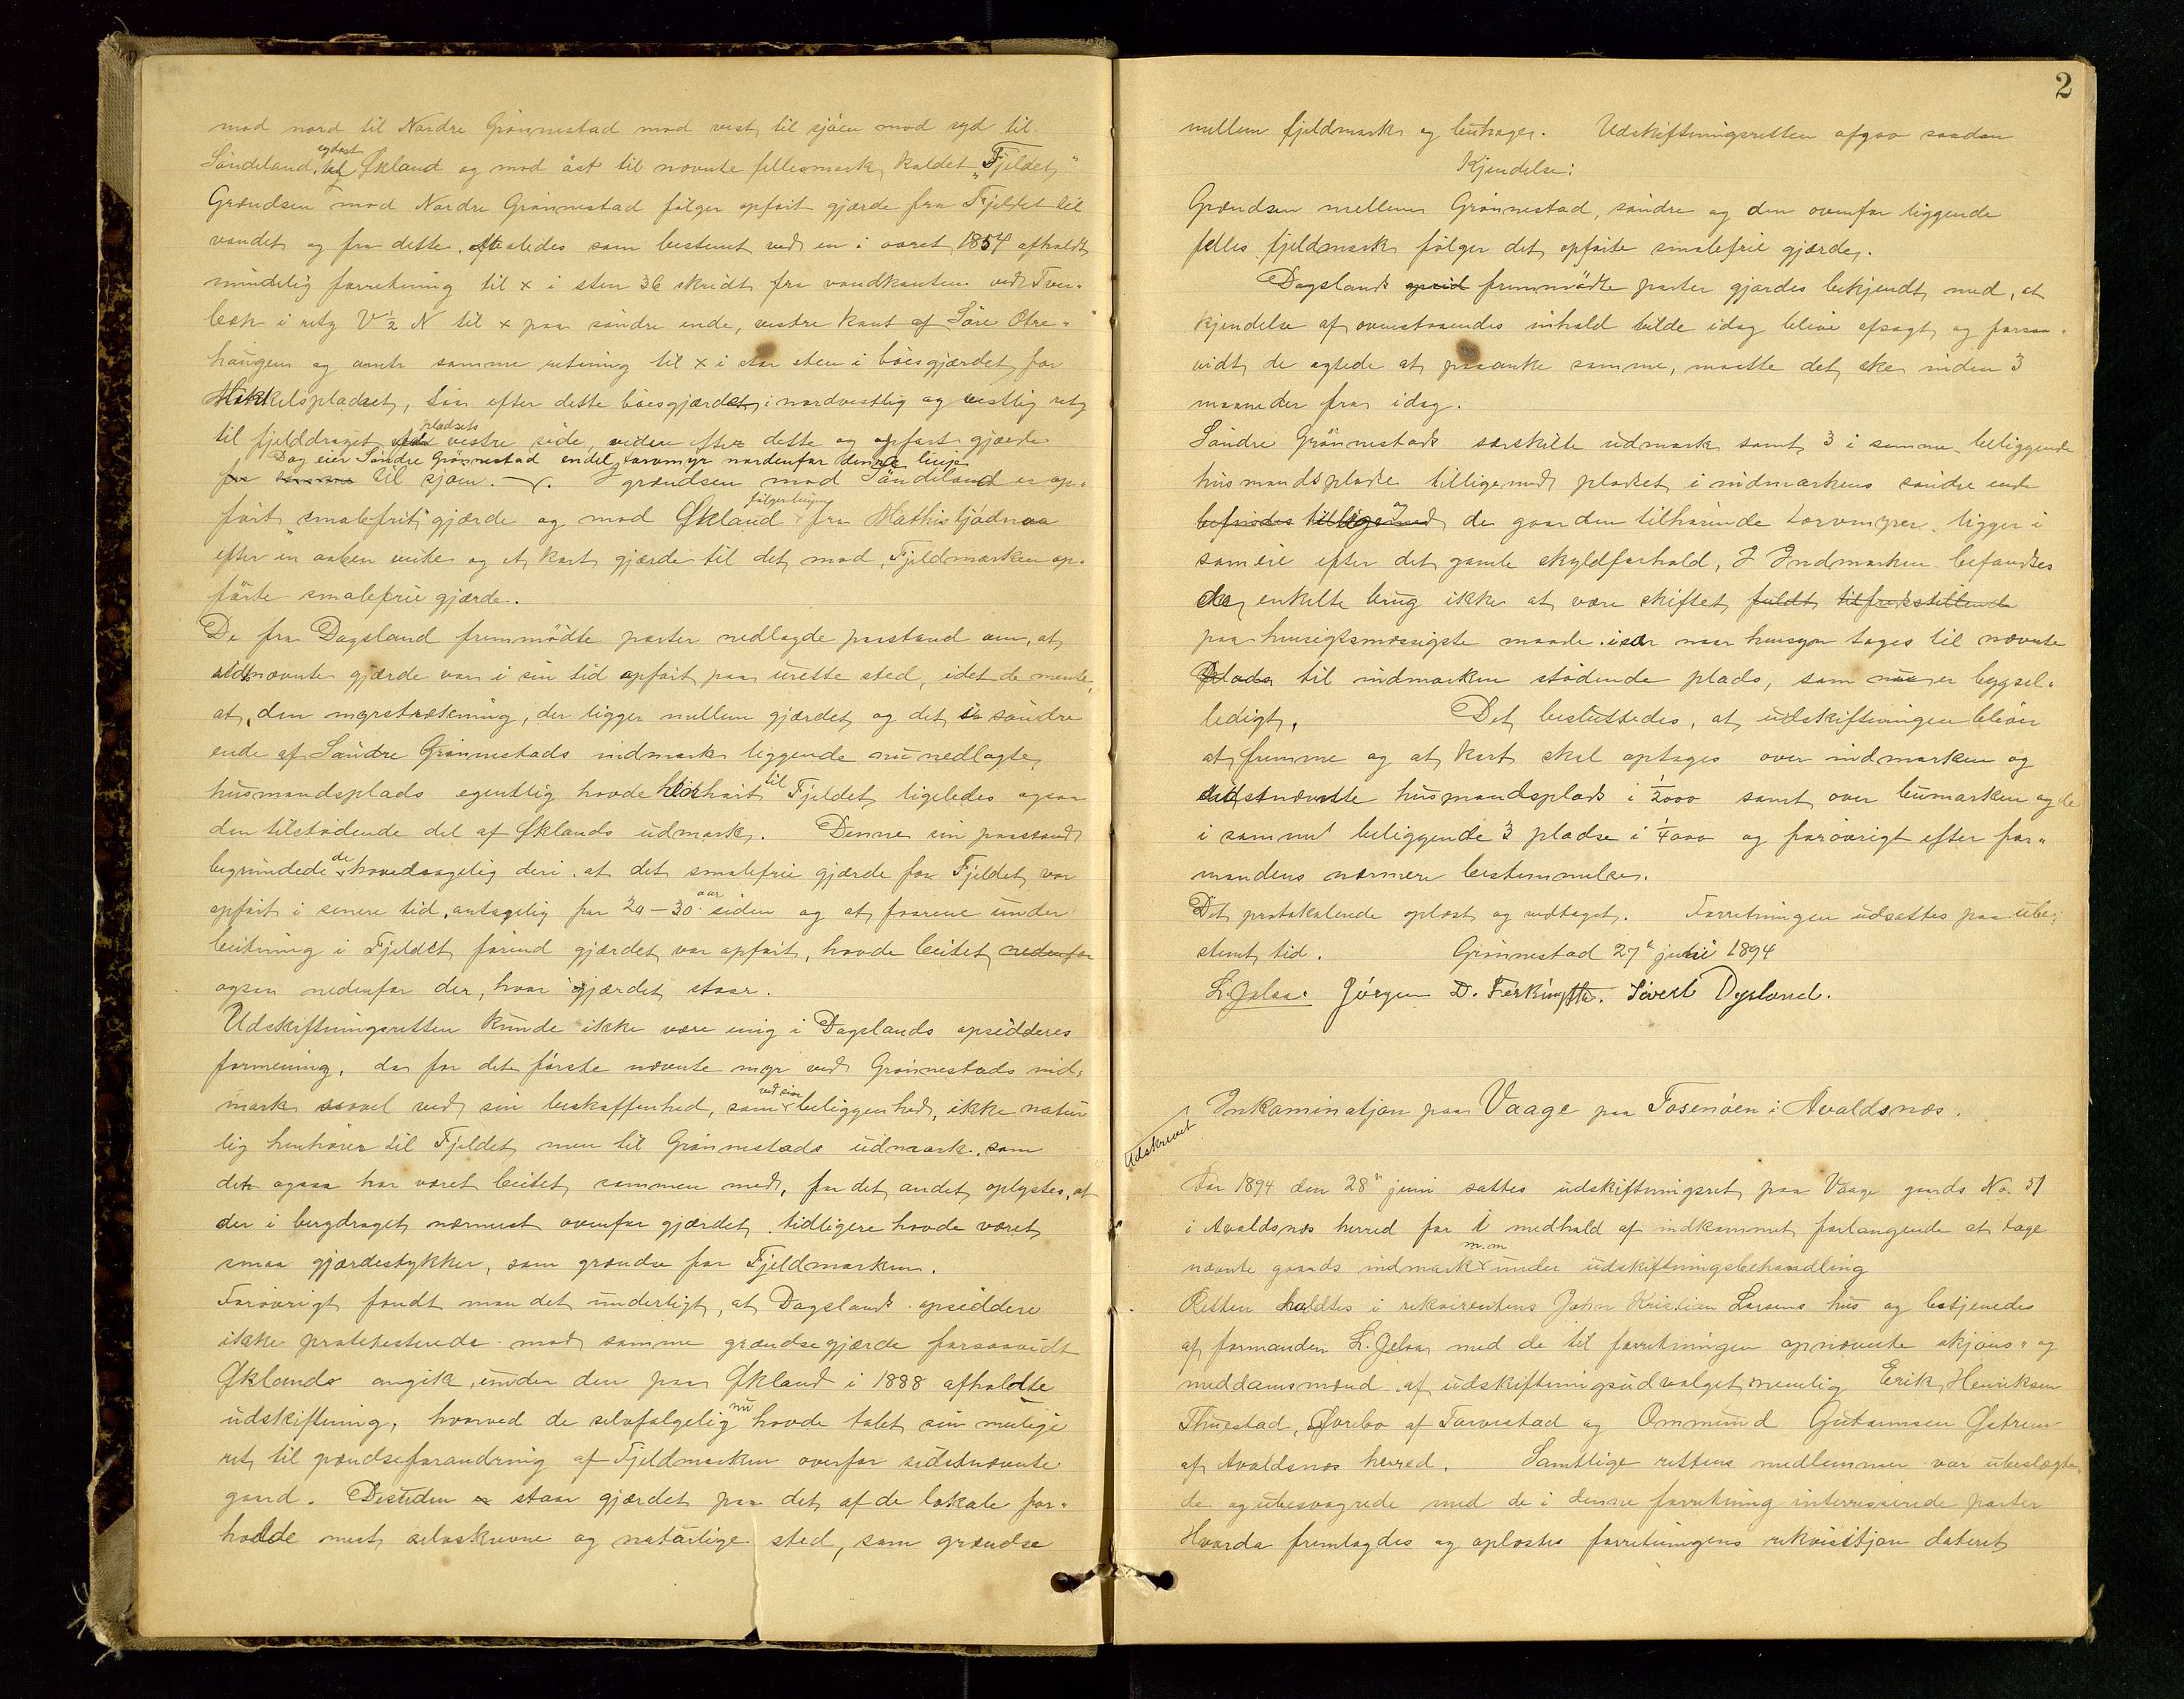 mod nord til Nordre Grönnestad mod vest til sjöen mod syd til
Söndeland, sydost til Økland og mod öst til nævnte fellesmark, kaldet „Fjeldet„
Grændsen mod Nordre Grönnestad fölger opfört gjærde fra Fjeldet til
vandet og fra dette, saaledes som bestemt ved en i aaret 1854 afholdt
mindelig forretning til x i sten 36 skridt fra vandkanten ved Tver-
bæk i retg V ½ N til x paa söndre ende, vestre kant af Söre Otre-
haugen og samme retning til x i stor sten i böesgjærdet for
Mikkelspladset, saa efter dette böesgjærdet i nordvestlig og vestlig retg
til fjelddraget pladsets vestre side, videre efter dette og opfört gjærde
Dog eier Söndre Grönnestad endel torvmyr nordenfor denne linje
fra samme til sjöen. I grændsen mod Söndeland er op-
fört „smalefrit„ gjærde og mod Økland fölger linjen fra Mathistjödnaa
efter en aaben veite og et kort gjærde til det mod Fjeldmarken op-
förte smalefrie gjærde.
De fra Dagsland fremmödte parter nedlagde paastand om, at
sidstnævnte gjærde var i sin tid opfört paa urette sted, idet de mente,
at den myrstrækning, der ligger mellem gjærdet og det i söndre
ende af Söndre Grönnestads indmark liggende nu nedlagte
husmandsplads egentlig havde henhört til Fjeldet ligeledes ogsaa
den tilstödende del af Øklands udmark. Denne sin paastand
begrundede de hovedsagelig deri, at det smalefrie gjærde for Fjeldet var
opfört i senere tid, antagelig for 20-30 aar siden og at faarene under
beitning i Fjeldet förend gjærdet var opfört, havde beitet nedenfor
ogsaa nedenfor der, hvor gjærdet staar.
Udskiftningsretten kunde ikke være enig i Dagslands opsidderes
formening, da for det förste nævnte myr ved Grönnestads ind-
mark saavel ved sin beskaffenhed, som ved sin beliggenhed, ikke natur
lig henhörer til Fjeldet, men til Grönnestads udmark, som
det ogsaa har været beitet sammen med, for det andet oplystes, at
der i bergdraget nærmest ovenfor gjærdet tidligere havde været
smaa gjærdestykker, som grændse for Fjeldmarken.
Foravrigt fandt man det underligt, at Dagslands opsiddere
ikke protesterede mod samme grændsegjærde forsaavidt
Øklands angik, under den paa Økland i 1888 afholdte
udskiftning, hvorved de selvfølgelig nu havde tabt sin mulige
ret til grændseforandring af Fjeldmarken overfor sidstnævnte
gaard. Desuden staar gjærdet paa det af de lokale for-
holde mest selvskrevne og naturlige sted, som grændse
2
mellem fjeldmark og beitehager. Udskiftningsretten afgav saadan
Kjendelse:
Grændsen mellem Grönnestad, söndre og den ovenfor liggende
felles fjeldmark fölger det opförte smalefrie gjærde.
Dagslands fremmödte parter gjordes bekjendt med, at
kjendelse af ovenstaaendes inhold vilde idag blive afsagt og forsaa-
vidt de agtede at paaanke samme, maatte det ske inden 3
maaneder fra idag.
Söndre Grönnestads særskilte udmark samt 3 i samme beliggende
husmandspladse tilligemed pladset i indmarkens söndre ende
befindes tilligemed og de gaarden tilhörende torvmyrer ligger i
sameie efter det gamle skyldforhold, I Indmarken befandtes
de enkelte brug ikke at være skiftet fuldt tilfredsstillende
paa hensigtsmæssigste maade især naar hensyn tages til nævnte
Plads til indmarken stödende plads, som nu er bygsel-
ledigt. Det besluttedes, at udskiftningen bliver
at fremme og at kart skal optages over indmarken og
sidstnævnte husmandsplads i 1/2000 samt over beimarken og de
i sammes beliggende 3 pladse i 1/4000 og forövrigt efter for-
mandens nærmere bestemmelse.
Det protokolerede oplæst og vedtaget. Forretningen udsattes paa ube-
stemt tid. Grönnestad 27de juni 1894
L. Jelsa. Jörgen D. Ferkingsta. Sivert Dysland.
Udskrevet
Inkaminatjon paa Vaage paa Fosenöen i Avaldsnæs.
Aar 1894 den 28de juni sattes udskiftningsret paa Vaage gaards No. 51
i Avaldsnæs herred for i medhold af indkommet forlangende at tage
nævnte gaards indmark m.m under udskiftningsbehandling
Retten holdtes i rekvirentens John Kristian Larsens hus og betjenedes
af formanden L. Jelsa, med de til forretningen opnævnte skjöns- og
meddomsmænd af udskiftningsudvalget, nemlig Erik Henriksen
Thuestad, Øvrebö af Torvestad og Ommund Gutormsen Østrem
af Avaldsnæs herred. Samtlige rettens medlemmer var ubeslægte-
de og ubesvogrede med de i denne forretning interesserede parter
Hvorda fremlagdes og oplæstes forretningens rekvisitjon dateret